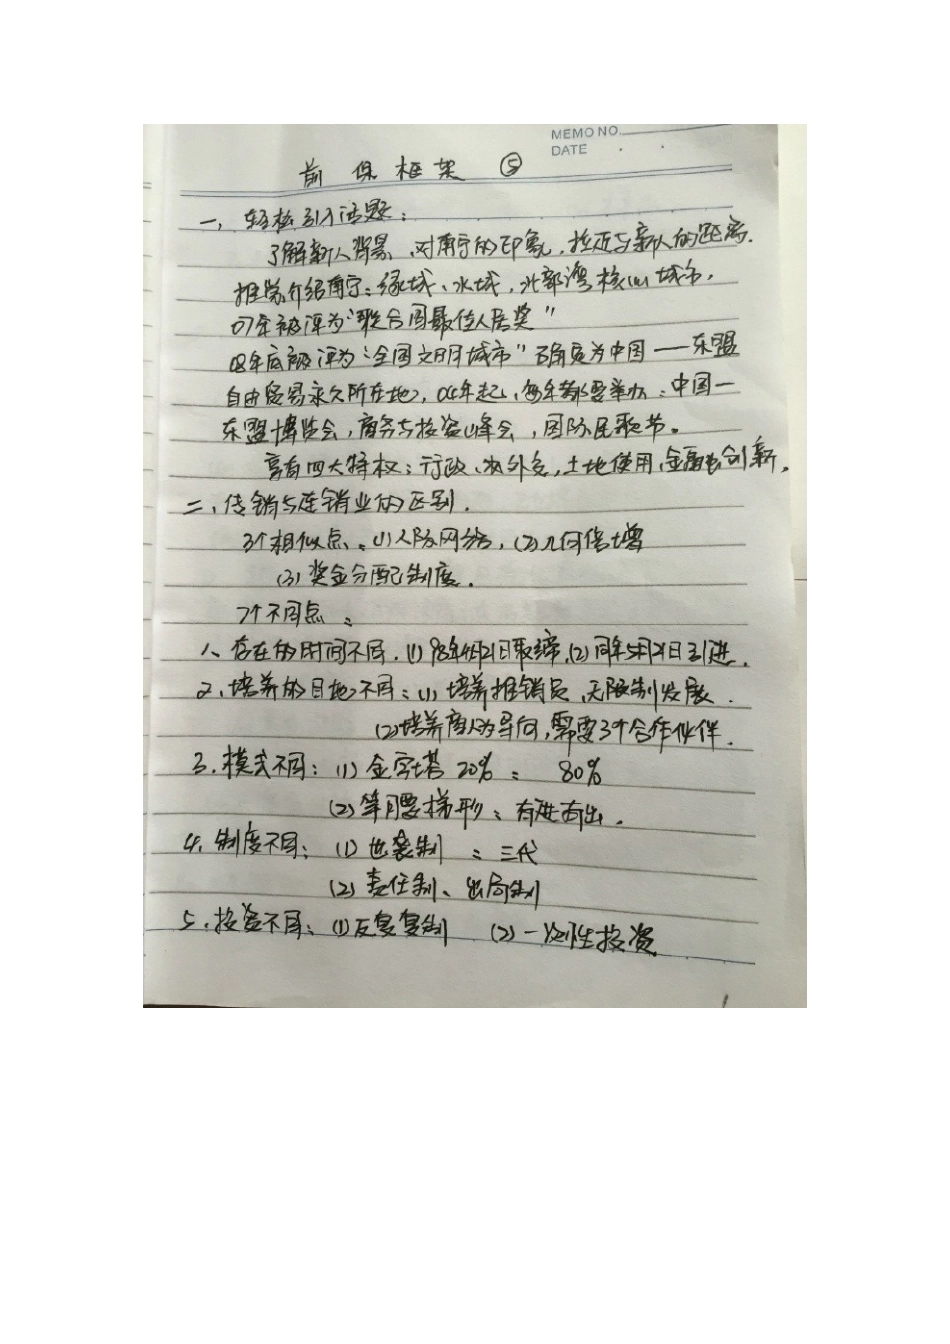 MEMO NO.
DATE
前 保 框 架 ⑤
一、轻松引入话题:
了解新人背景、对南宁的印象,拉近与新人的距离.
推崇介绍南宁:绿城、水城,北部湾核心城市.
07年被评为"联合国最佳人居奖"
08年底被评为"全国文明城市"确定为中国——东盟
自由贸易永久所在地,04年起,每年都要举办:中国一
东盟博览会,商务与投资峰会,国际民歌节。
享有四大特权:行政、外交,土地使用,金融创新.
二、传销与连锁业的区别.
3个相似点:(1)人际网络,(2)几何倍增
(3)奖金分配制度.
7个不同点:
1、存在的时间不同.(1)98年4月21日取缔,(2)同年5月21日引进.
2、培养的目地不同:(1)培养推销员、无限制发展.
(2)培养商人为导向,需要3个合作伙伴.
3.模式不同:(1)金字塔 20% : 80%
(2)等腰梯形:有进有出.
4.制度不同:(1)世袭制 :三代
(2)责任制、出局制
5.投资不同:(1)反复复制 (2)一次性投资